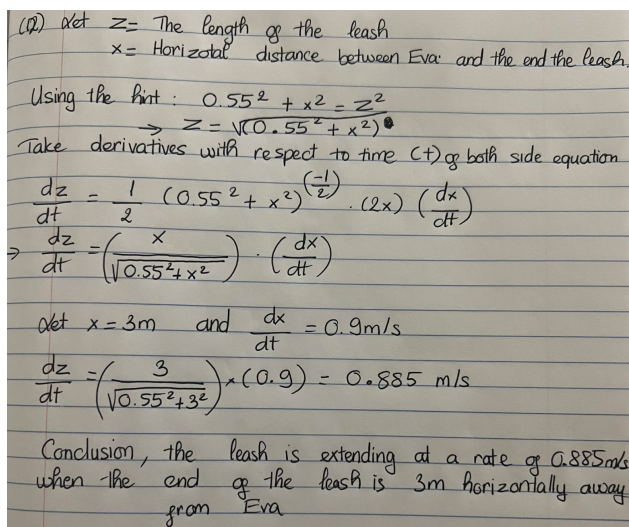 (Q2) Let z = The length of the leash
x = Horizotal distance between Eva and the end the leash.
Using the hint : 0.55² + x² = z²
→ z = √(0.55² + x²)
Take derivatives with respect to time (t) of both side equation
dz/dt = 1/2 (0.55² + x²)^(-1/2) · (2x) (dx/dt)
→ dz/dt = (x/√(0.55² + x²)) · (dx/dt)
Let x = 3m and dx/dt = 0.9m/s
dz/dt = (3/√(0.55² + 3²)) × (0.9) = 0.885 m/s
Conclusion, the leash is extending at a rate of 0.885m/s
when the end of the leash is 3m horizontally away
from Eva